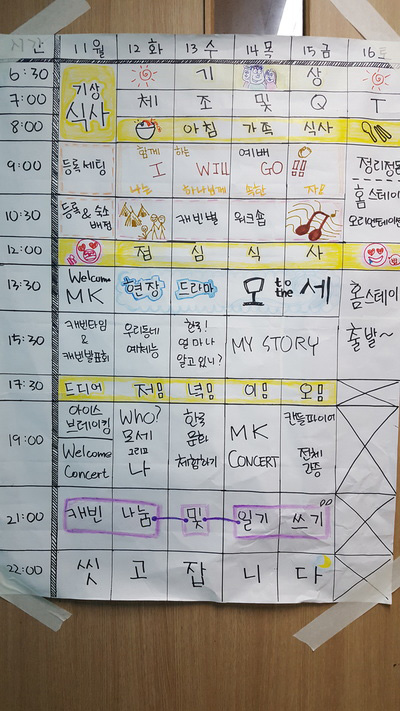 시간 11월 12화 13수 14목 15금 16토
6:30 기상
식사 기 상
7:00 체 조 및 Q T
8:00 아침 가족 식사
9:00 등록세팅 함께 하는 예배
I WILL GO !!
나는 하나님께 속한 자요
정리정돈
홈스테이
오리엔테이션
10:30 등록&숙소
배정 캐빈별 워크숍
12:00 점 심 식 사
13:30 Welcome
MK 현장 드라마 모 to
the 세 홈스테이
15:30 캐빈타임
&
캐빈발표회 우리동네
예체능 한국!
얼마나
알고있니? MY STORY 출발~
17:30 드디어 저밈 녁밈 이밈 오밈
19:00 아이스
브레이킹 Welcome
Concert
Who?
모세
그리고
나
한국
문화
체험하기
MK
CONCERT
캔들파이어
전체
21:00 캐빈 나눔 및 일기 쓰기
22:00 씻 고 잡 니 다